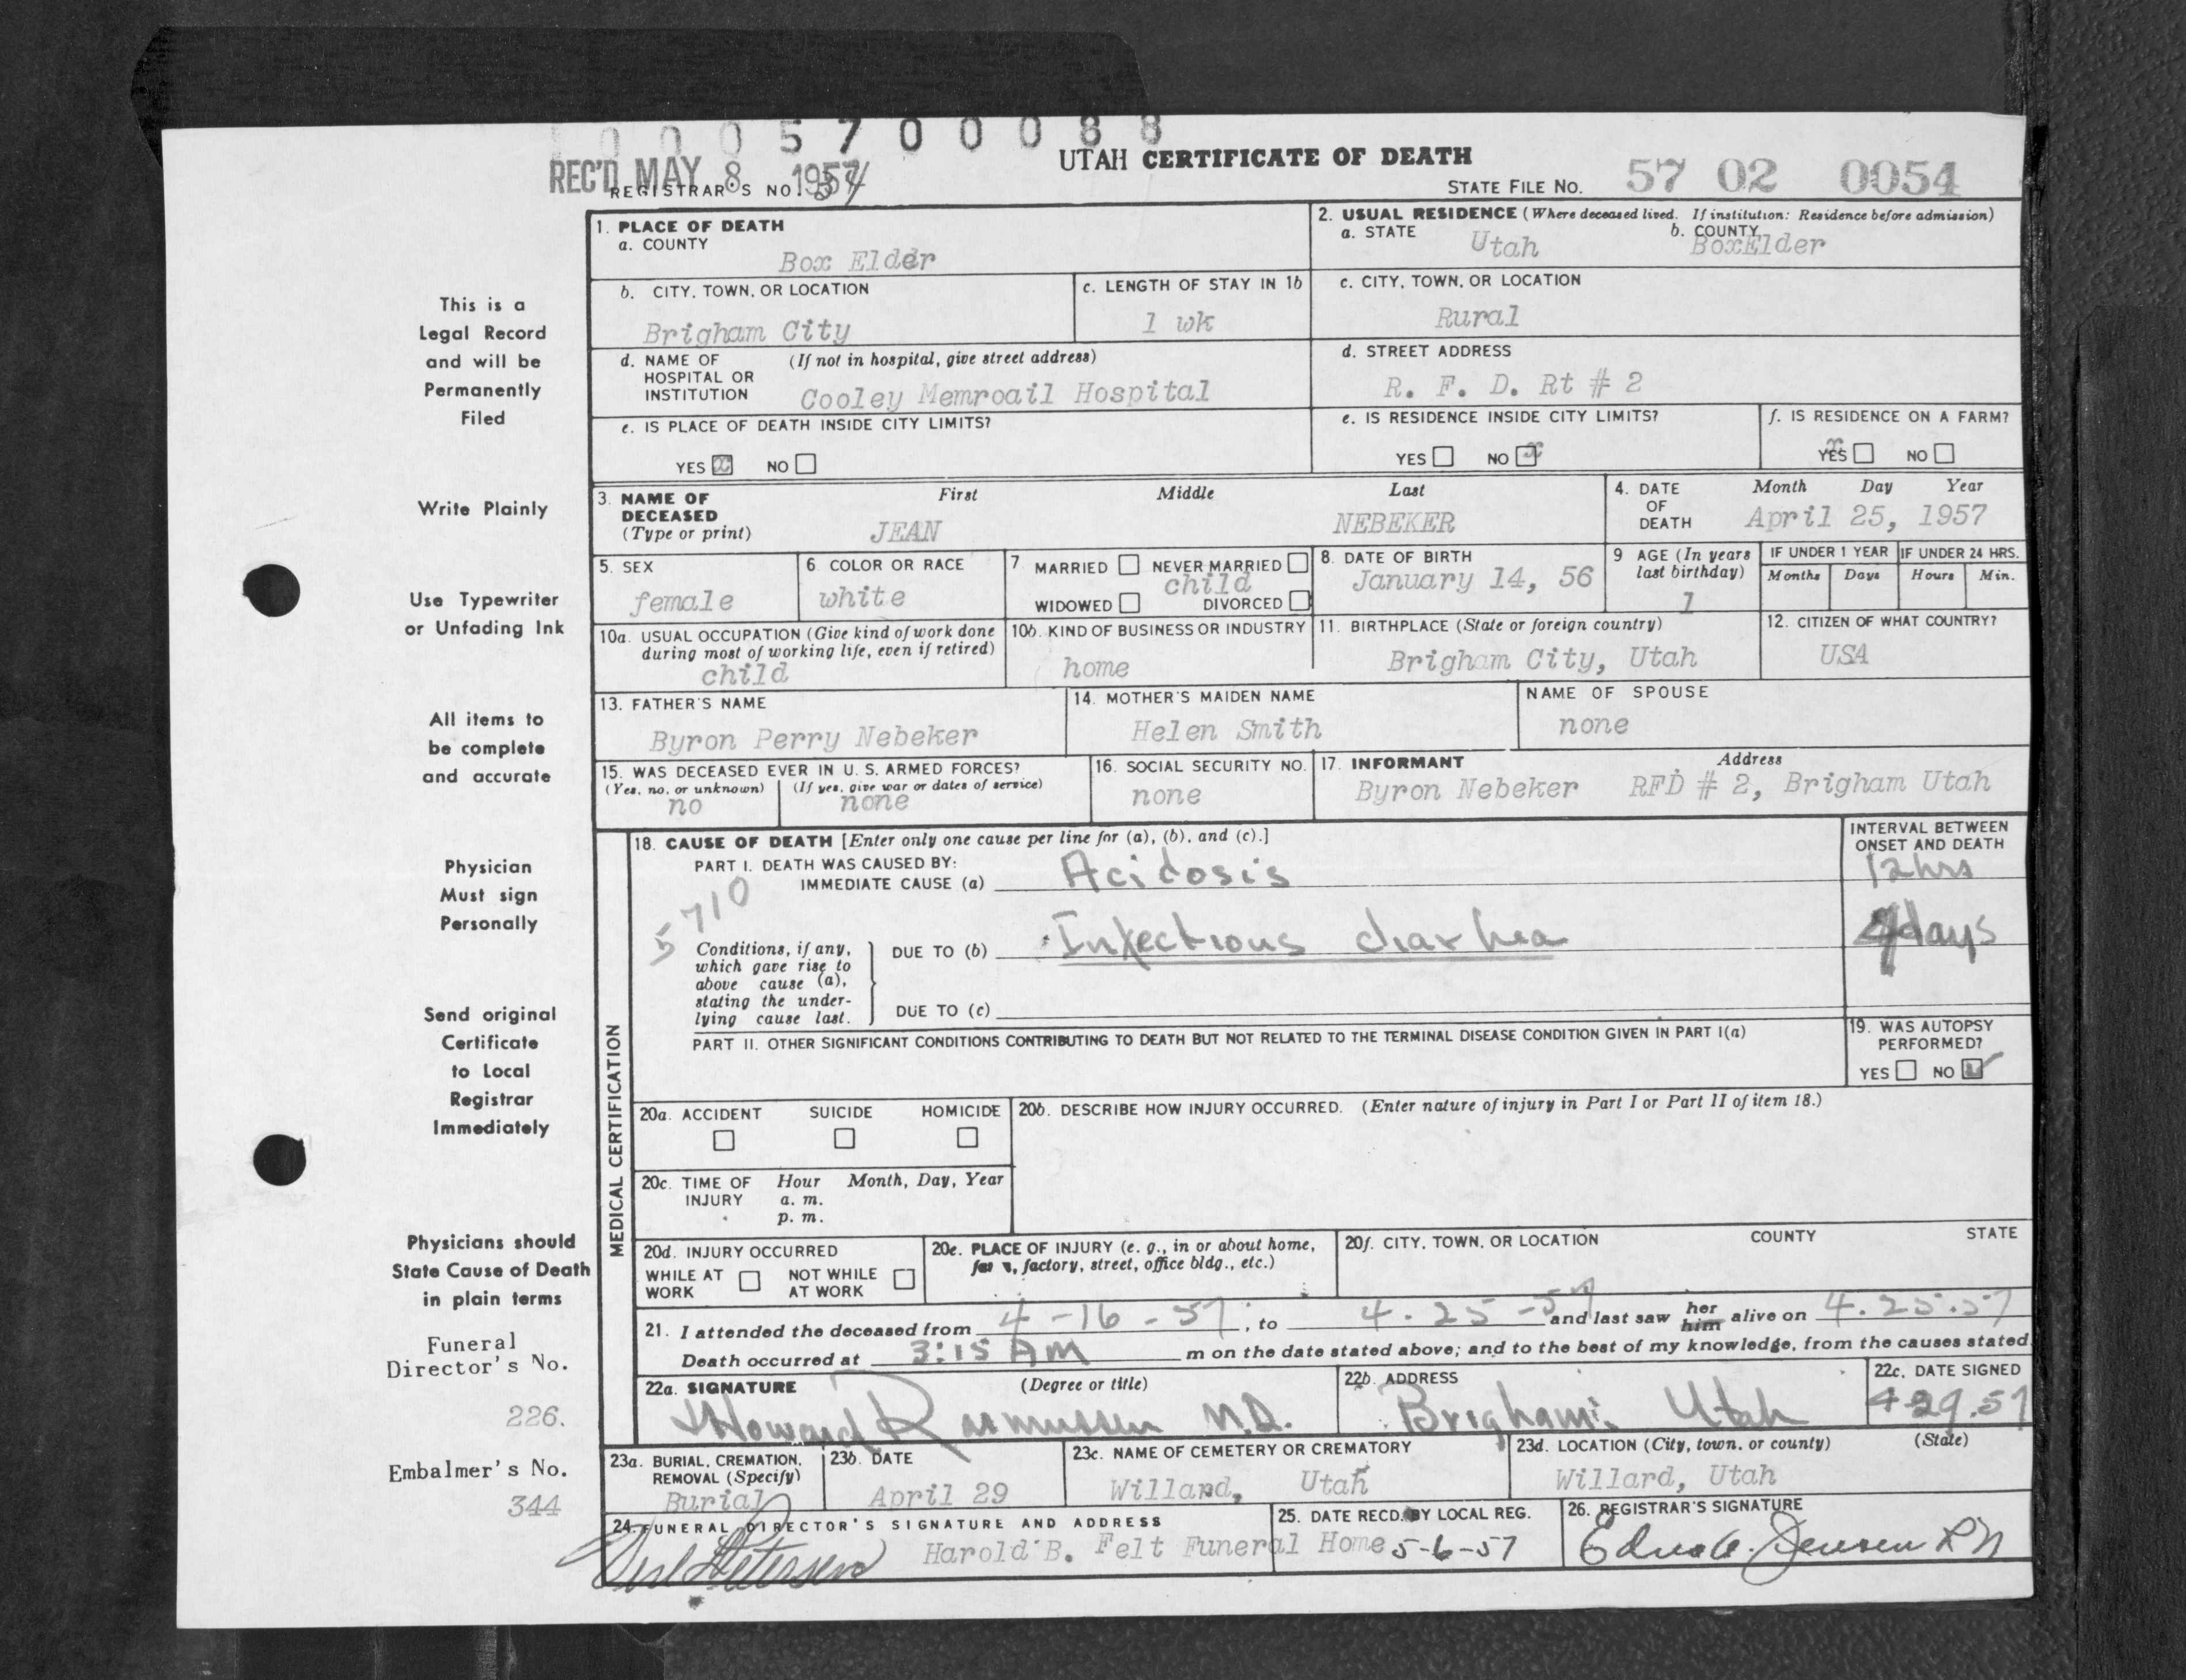 0 0 0 5 7 0 0 0 8 8
REC'D MAY 8 1957
REGISTRAR'S NO. 54
UTAH CERTIFICATE OF DEATH
STATE FILE NO. 57 02 0054
This is a
Legal Record
and will be
Permanently
Filed
Write Plainly
Use Typewriter
or Unfading Ink
All items to
be complete
and accurate
Physician
Must sign
Personally
Send original
Certificate
to Local
Registrar
Immediately
Physicians should
State Cause of Death
in plain terms
Funeral
Director's No.
226.
Embalmer's No.
344
1. PLACE OF DEATH
a. COUNTY
Box Elder
2. USUAL RESIDENCE (Where deceased lived. If institution: Residence before admission)
a. STATE Utah b. COUNTY BoxElder
b. CITY, TOWN, OR LOCATION
Brigham City
c. LENGTH OF STAY IN 1b
1 wk
c. CITY, TOWN, OR LOCATION
Rural
d. NAME OF (If not in hospital, give street address)
HOSPITAL OR
INSTITUTION Cooley Memroail Hospital
d. STREET ADDRESS
R. F. D. Rt # 2
e. IS PLACE OF DEATH INSIDE CITY LIMITS?
YES x NO
e. IS RESIDENCE INSIDE CITY LIMITS?
YES NO x
f. IS RESIDENCE ON A FARM?
x YES NO
3. NAME OF DECEASED (Type or print)
First Middle Last
JEAN NEBEKER
4. DATE OF DEATH
Month Day Year
April 25, 1957
5. SEX
female
6. COLOR OR RACE
white
7. MARRIED NEVER MARRIED
child
WIDOWED DIVORCED
8. DATE OF BIRTH
January 14, 56
9 AGE (In years last birthday)
1
IF UNDER 1 YEAR
Months Days
IF UNDER 24 HRS.
Hours Min.
10a. USUAL OCCUPATION (Give kind of work done
during most of working life, even if retired)
child
10b. KIND OF BUSINESS OR INDUSTRY
home
11. BIRTHPLACE (State or foreign country)
Brigham City, Utah
12. CITIZEN OF WHAT COUNTRY?
USA
13. FATHER'S NAME
Byron Perry Nebeker
14. MOTHER'S MAIDEN NAME
Helen Smith
NAME OF SPOUSE
none
15. WAS DECEASED EVER IN U. S. ARMED FORCES?
(Yes, no, or unknown) (If yes, give war or dates of service)
no none
16. SOCIAL SECURITY NO.
none
17. INFORMANT Address
Byron Nebeker RFD # 2, Brigham Utah
MEDICAL CERTIFICATION
18. CAUSE OF DEATH [Enter only one cause per line for (a), (b), and (c).]
PART I. DEATH WAS CAUSED BY:
IMMEDIATE CAUSE (a) Acidosis
INTERVAL BETWEEN
ONSET AND DEATH
12 hrs
5710
Conditions, if any,
which gave rise to
above cause (a),
stating the under-
lying cause last.
DUE TO (b) Infectious diarhea
days
DUE TO (c)
PART II. OTHER SIGNIFICANT CONDITIONS CONTRIBUTING TO DEATH BUT NOT RELATED TO THE TERMINAL DISEASE CONDITION GIVEN IN PART I(a)
19. WAS AUTOPSY
PERFORMED?
YES NO ✓
20a. ACCIDENT SUICIDE HOMICIDE
20b. DESCRIBE HOW INJURY OCCURRED. (Enter nature of injury in Part I or Part II of item 18.)
20c. TIME OF INJURY
Hour Month, Day, Year
a. m.
p. m.
20d. INJURY OCCURRED
WHILE AT WORK NOT WHILE AT WORK
20e. PLACE OF INJURY (e. g., in or about home,
factory, street, office bldg., etc.)
20f. CITY, TOWN, OR LOCATION COUNTY STATE
21. I attended the deceased from 4-16-57, to 4-25-57 and last saw her him alive on 4.25.57
Death occurred at 3:15 AM m on the date stated above; and to the best of my knowledge, from the causes stated
22a. SIGNATURE (Degree or title)
Howard Rasmussen M.D.
22b. ADDRESS
Brigham Utah
22c. DATE SIGNED
4-29.57
23a. BURIAL, CREMATION,
REMOVAL (Specify)
Burial
23b. DATE
April 29
23c. NAME OF CEMETERY OR CREMATORY
Willard, Utah
23d. LOCATION (City, town, or county) (State)
Willard, Utah
24. FUNERAL DIRECTOR'S SIGNATURE AND ADDRESS
Petersen Harold B. Felt Funeral Home
25. DATE RECD. BY LOCAL REG.
5-6-57
26. REGISTRAR'S SIGNATURE
Edna C. Jensen RN